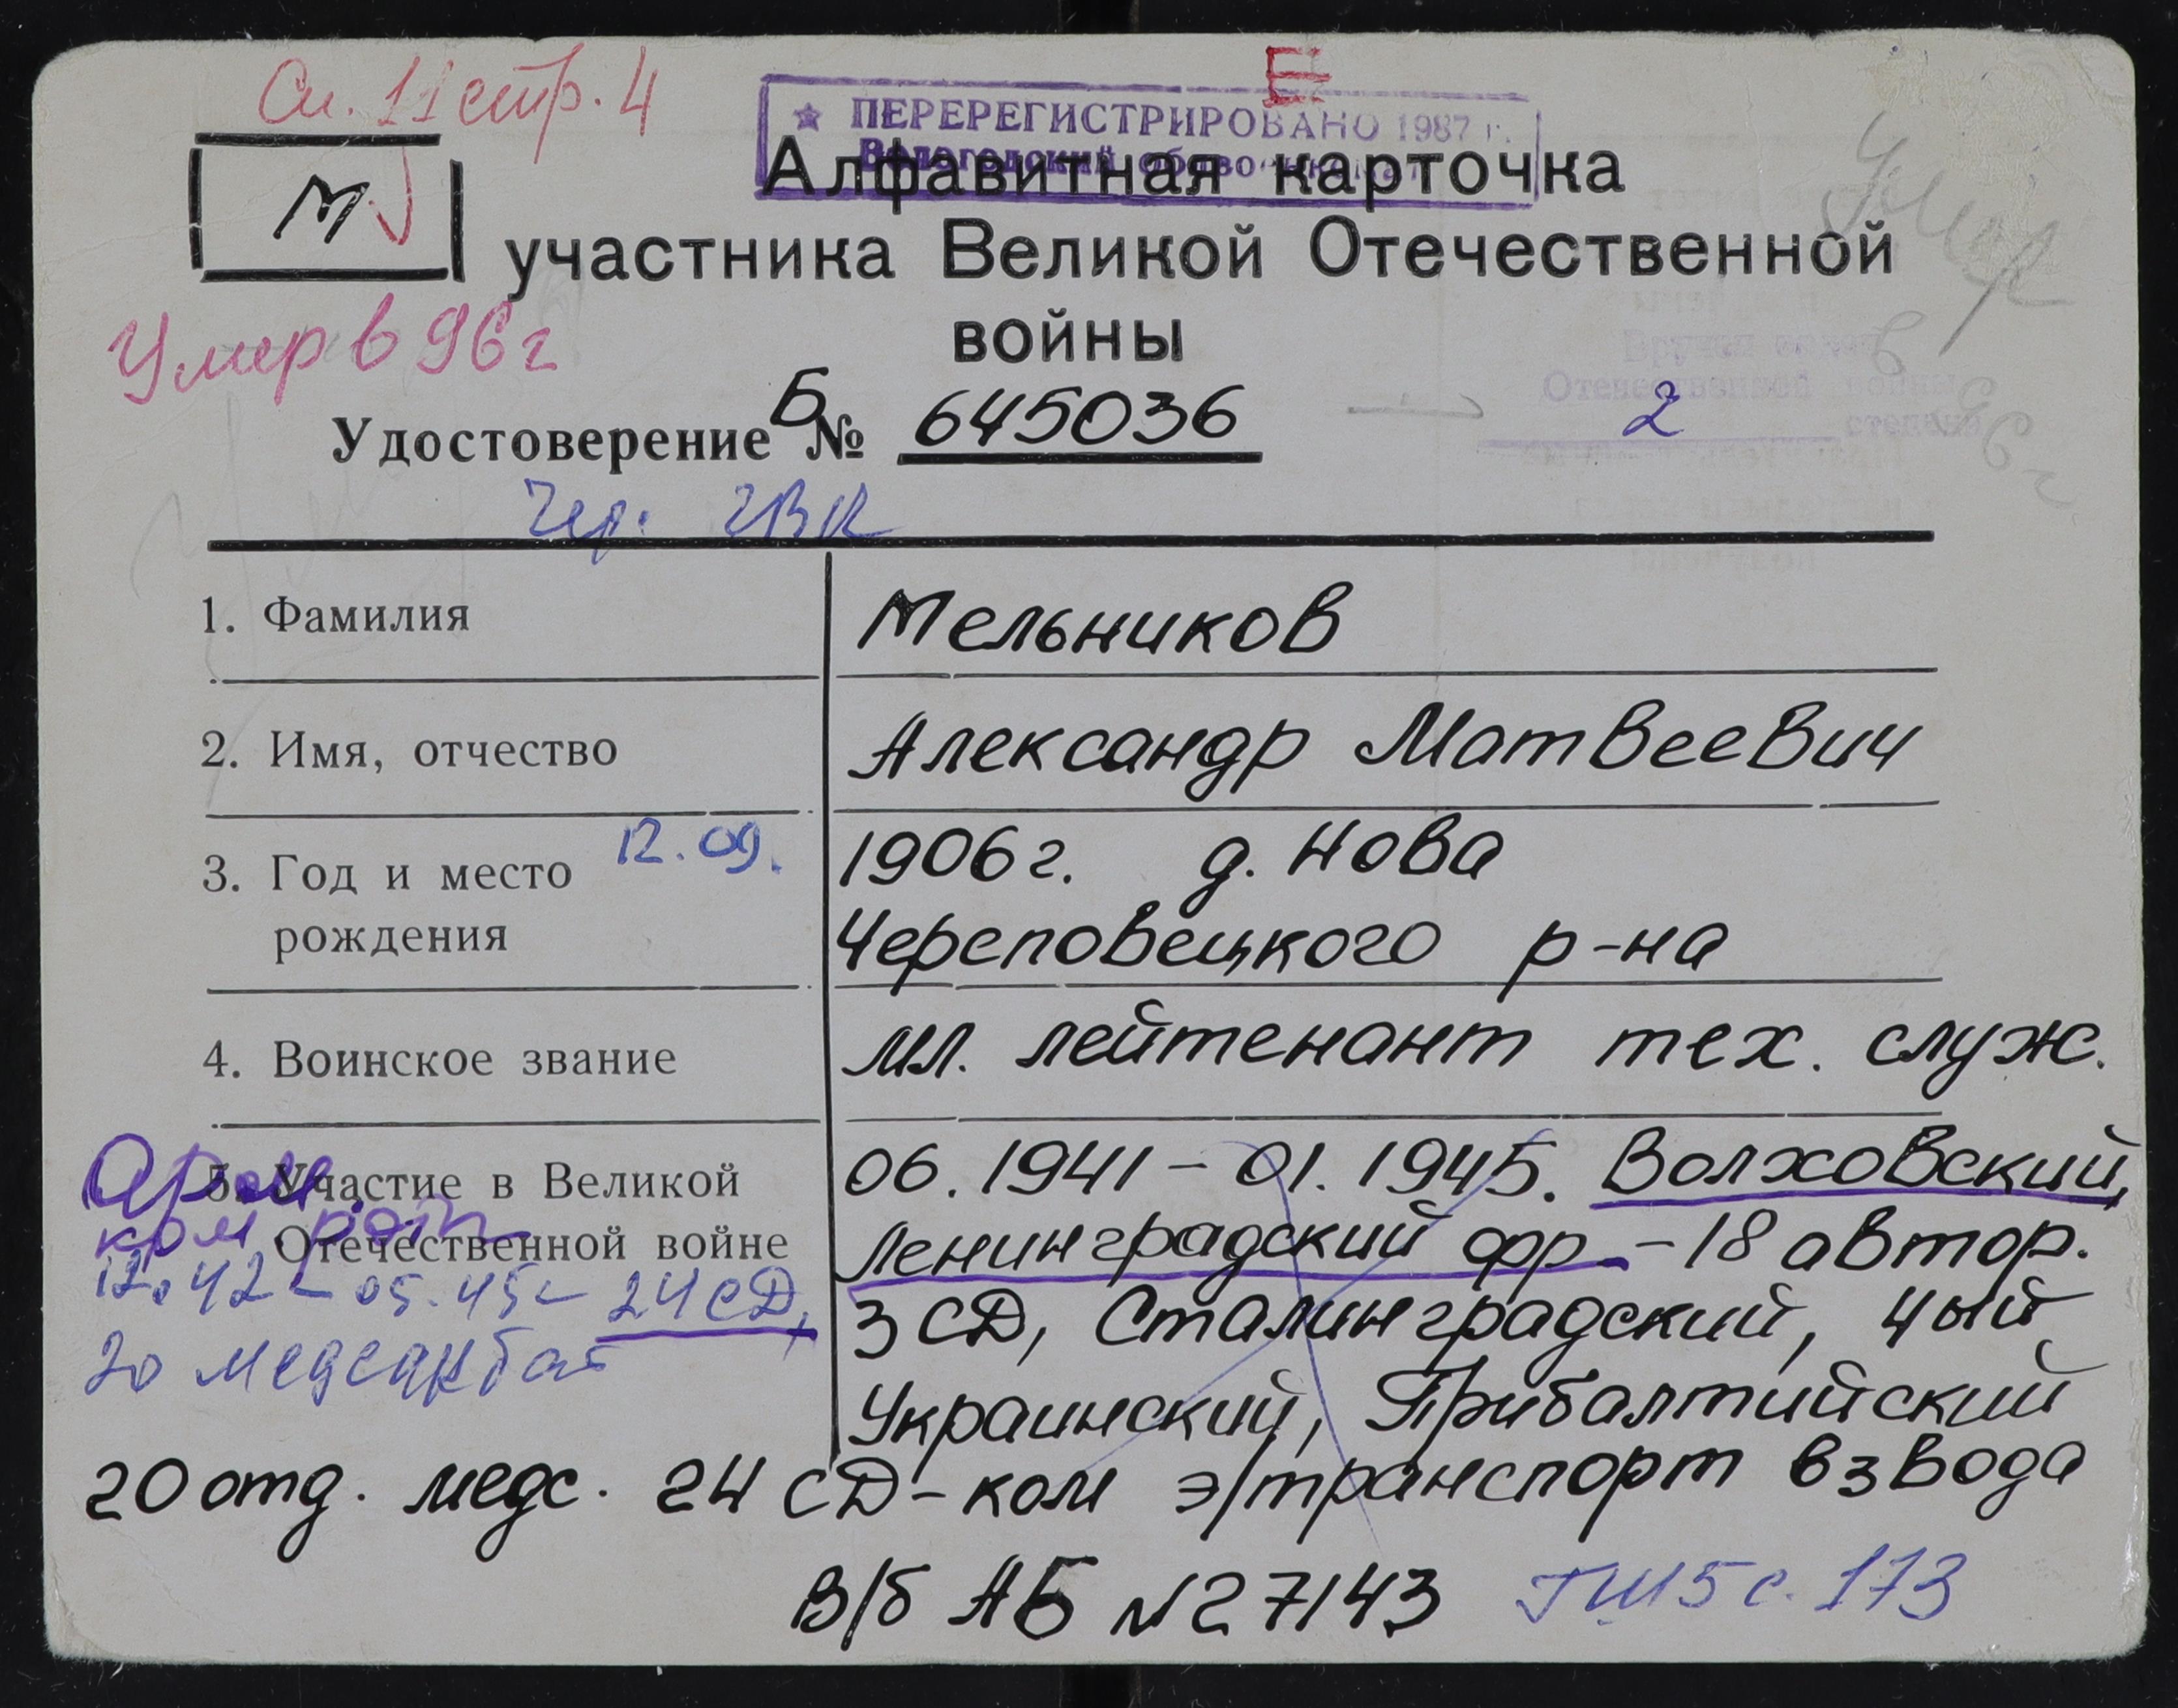 Сп. 11 стр. 4
Е
ПЕРЕРЕГИСТРИРОВАНО 1987 г.
Вологодский облвоенкомат
М
Алфавитная карточка
участника Великой Отечественной
войны
Умер
Умер в 96 г
в 96 г
Удостоверение Б № 645036
2
Чер. ГВК
1. Фамилия
Мельников
2. Имя, отчество
Александр Матвеевич
3. Год и место рождения
12.09.
1906 г. д. Нова
Череповецкого р-на
4. Воинское звание
мл. лейтенант тех. служ.
5. Участие в Великой
Отечественной войне
ком. рот
12.42 - 05.45 - 24 СД,
20 медсанбат
06.1941 - 01.1945. Волховский,
Ленинградский фр. - 18 автор.
3 СД, Сталинградский, 4ый
Украинский, Прибалтийский
20 отд. медс. 24 СД - ком э/транспорт взвода
В/б АБ №27143
ГШ 5 с. 173